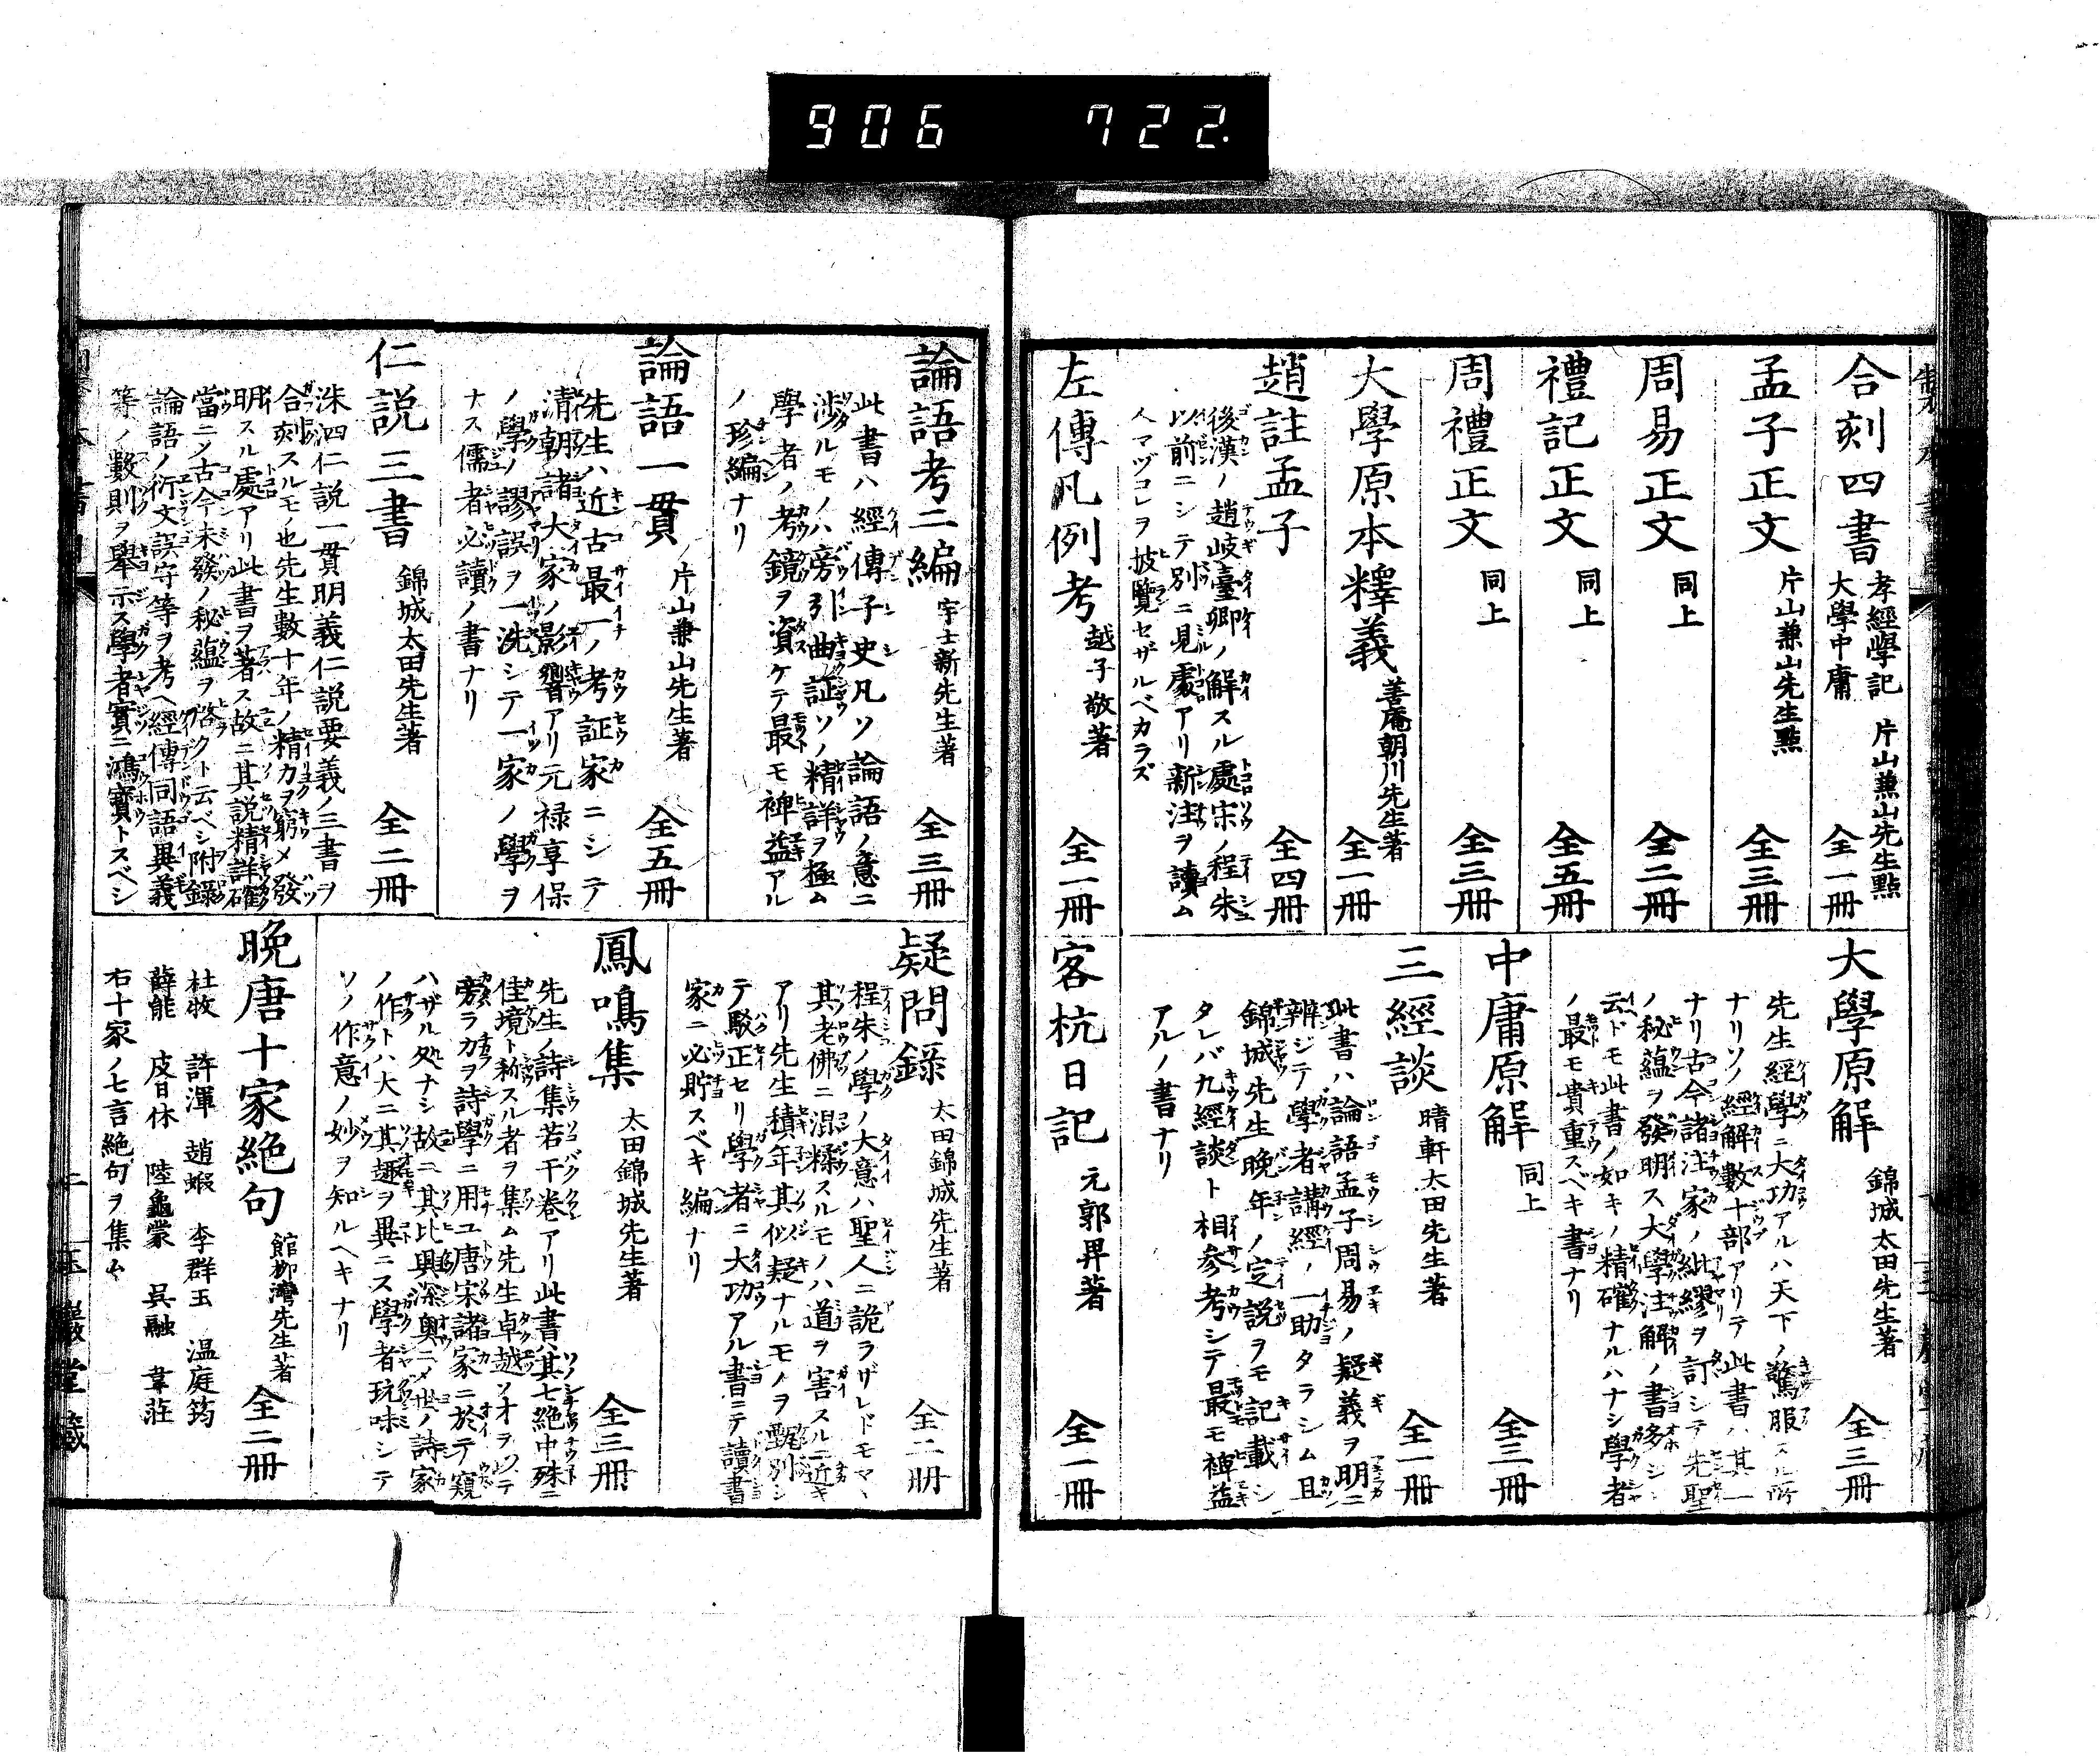 906 722.
合刻四書 孝經學記 大學中庸 片山兼山先生點 全一冊
孟子正文 片山兼山先生點 全三冊
周易正文 同上 全二冊
禮記正文 同上 全五冊
周禮正文 同上 全三冊
大學原本釋義 善庵朝川先生著 全一冊
趙註孟子 全四冊
後漢ノ趙岐臺卿ノ解スル處宋ノ程朱
以前ニシテ別ニ見處アリ新注ヲ讀ム
人マヅコレヲ披覽セザルベカラズ
左傳凡例考 越子敬著 全一冊
大學原解 錦城太田先生著 全三冊
先生經學ニ大功アルハ天下ノ驚服スル所
ナリソノ經解數十部アリテ此書ハ其一
ナリ古今諸注家ノ紕繆ヲ訂シテ先聖
ノ秘蘊ヲ發明ス大學注解ノ書多シト
云ヘドモ此書ノ如キノ精確ナルハナシ學者
ノ最モ貴重スベキ書ナリ
中庸原解 同上 全三冊
三經談 晴軒太田先生著 全一冊
此書ハ論語孟子周易ノ疑義ヲ明ニ
辨ジテ學者講經ノ一助タラシム且
錦城先生晩年ノ定説ヲモ記載シ
タレバ九經談ト相參考シテ最モ裨益
アルノ書ナリ
客杭日記 元郭畀著 全一冊
論語考二編 宇士新先生著 全三冊
此書ハ經傳子史凡ソ論語ノ意ニ
渉ルモノハ旁引曲証ソノ精詳ヲ極ム
學者ノ考鏡ヲ資ケテ最モ裨益アル
ノ珍編ナリ
論語一貫 片山兼山先生著 全五冊
先生ハ近古最一ノ考証家ニシテ
清朝諸大家ノ影響アリ元禄享保
ノ學ノ謬誤ヲ一洗シテ一家ノ學ヲ
ナス儒者必讀ノ書ナリ
仁説三書 錦城太田先生著 全二冊
洙泗仁説一貫明義仁説要義ノ三書ヲ
合刻スルモノ也先生數十年ノ精力ヲ窮メ發
明スル處アリ此書ヲ著ス故ニ其説精詳確
當ニシテ古今未發ノ秘蘊ヲ啓クト云ベシ附錄
論語ノ衍文誤字等ヲ考ヘ經傳同語異義
等ノ數則ヲ舉示ス學者實ニ鴻寶トスベシ
疑問錄 太田錦城先生著 全二冊
程朱ノ學ノ大意ハ聖人ニ詭ラザレドモマヽ
其老佛ニ混糅スルモノハ道ヲ害スルニ近キ
アリ先生積年其似疑ナルモノヲ甄別シ
テ駁正セリ學者ニ大功アル書ニテ讀書
家ニ必貯スベキ編ナリ
鳳鳴集 太田錦城先生著 全三冊
先生ノ詩集若干卷アリ此書ハ其七絶中殊ニ
佳境ト称スル者ヲ集ム先生卓越ノオヲ以テ
旁ラカヲ詩學ニ用ユ唐宋諸家ニ於テ窺
ハザル処ナシ故ニ其比興深奧ニメ世ノ詩家
ノ作トハ大ニ其趣ヲ異ニス學者玩味シテ
ソノ作意ノ妙ヲ知ルヘキナリ
晩唐十家絶句 館柳灣先生著 全二冊
杜牧 許渾 趙嘏 李群玉 温庭筠
薛能 皮日休 陸龜蒙 呉融 韋莊
右十家ノ七言絶句ヲ集ム
玉巖堂藏